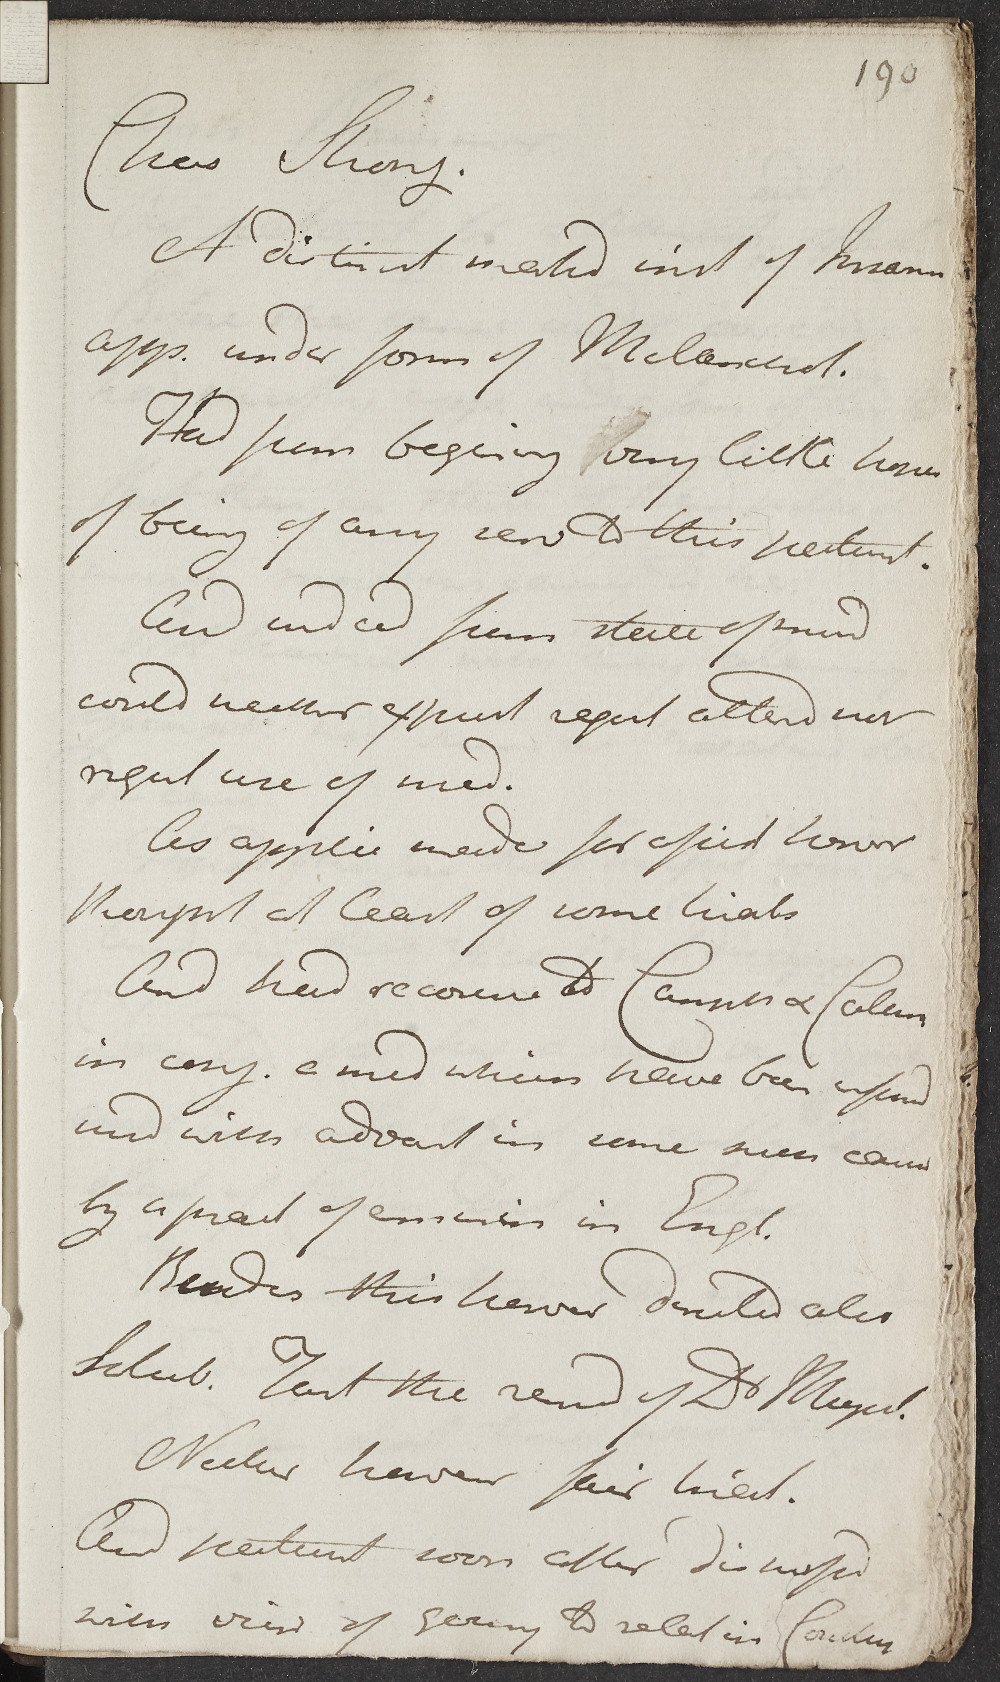 190
Chas Strong.
A distinct marked inst of Insan
app. under form of Melanchol.
Had from begining very little hopes
of being of any serv to this patient.
And indeed from state of mind
could neither expect regul attend nor
regul use of med.
As applic made for assist howev
thought at least of some trials
And had recourse to Camph &
in conj. a med which have been
used with advant in some such cases
by a pract of in Engl.
Besides this however directed also
Solub. Tart the remd of Dr
Neither however fair tried.
And patient soon after dismissed
with view of going to relat in London